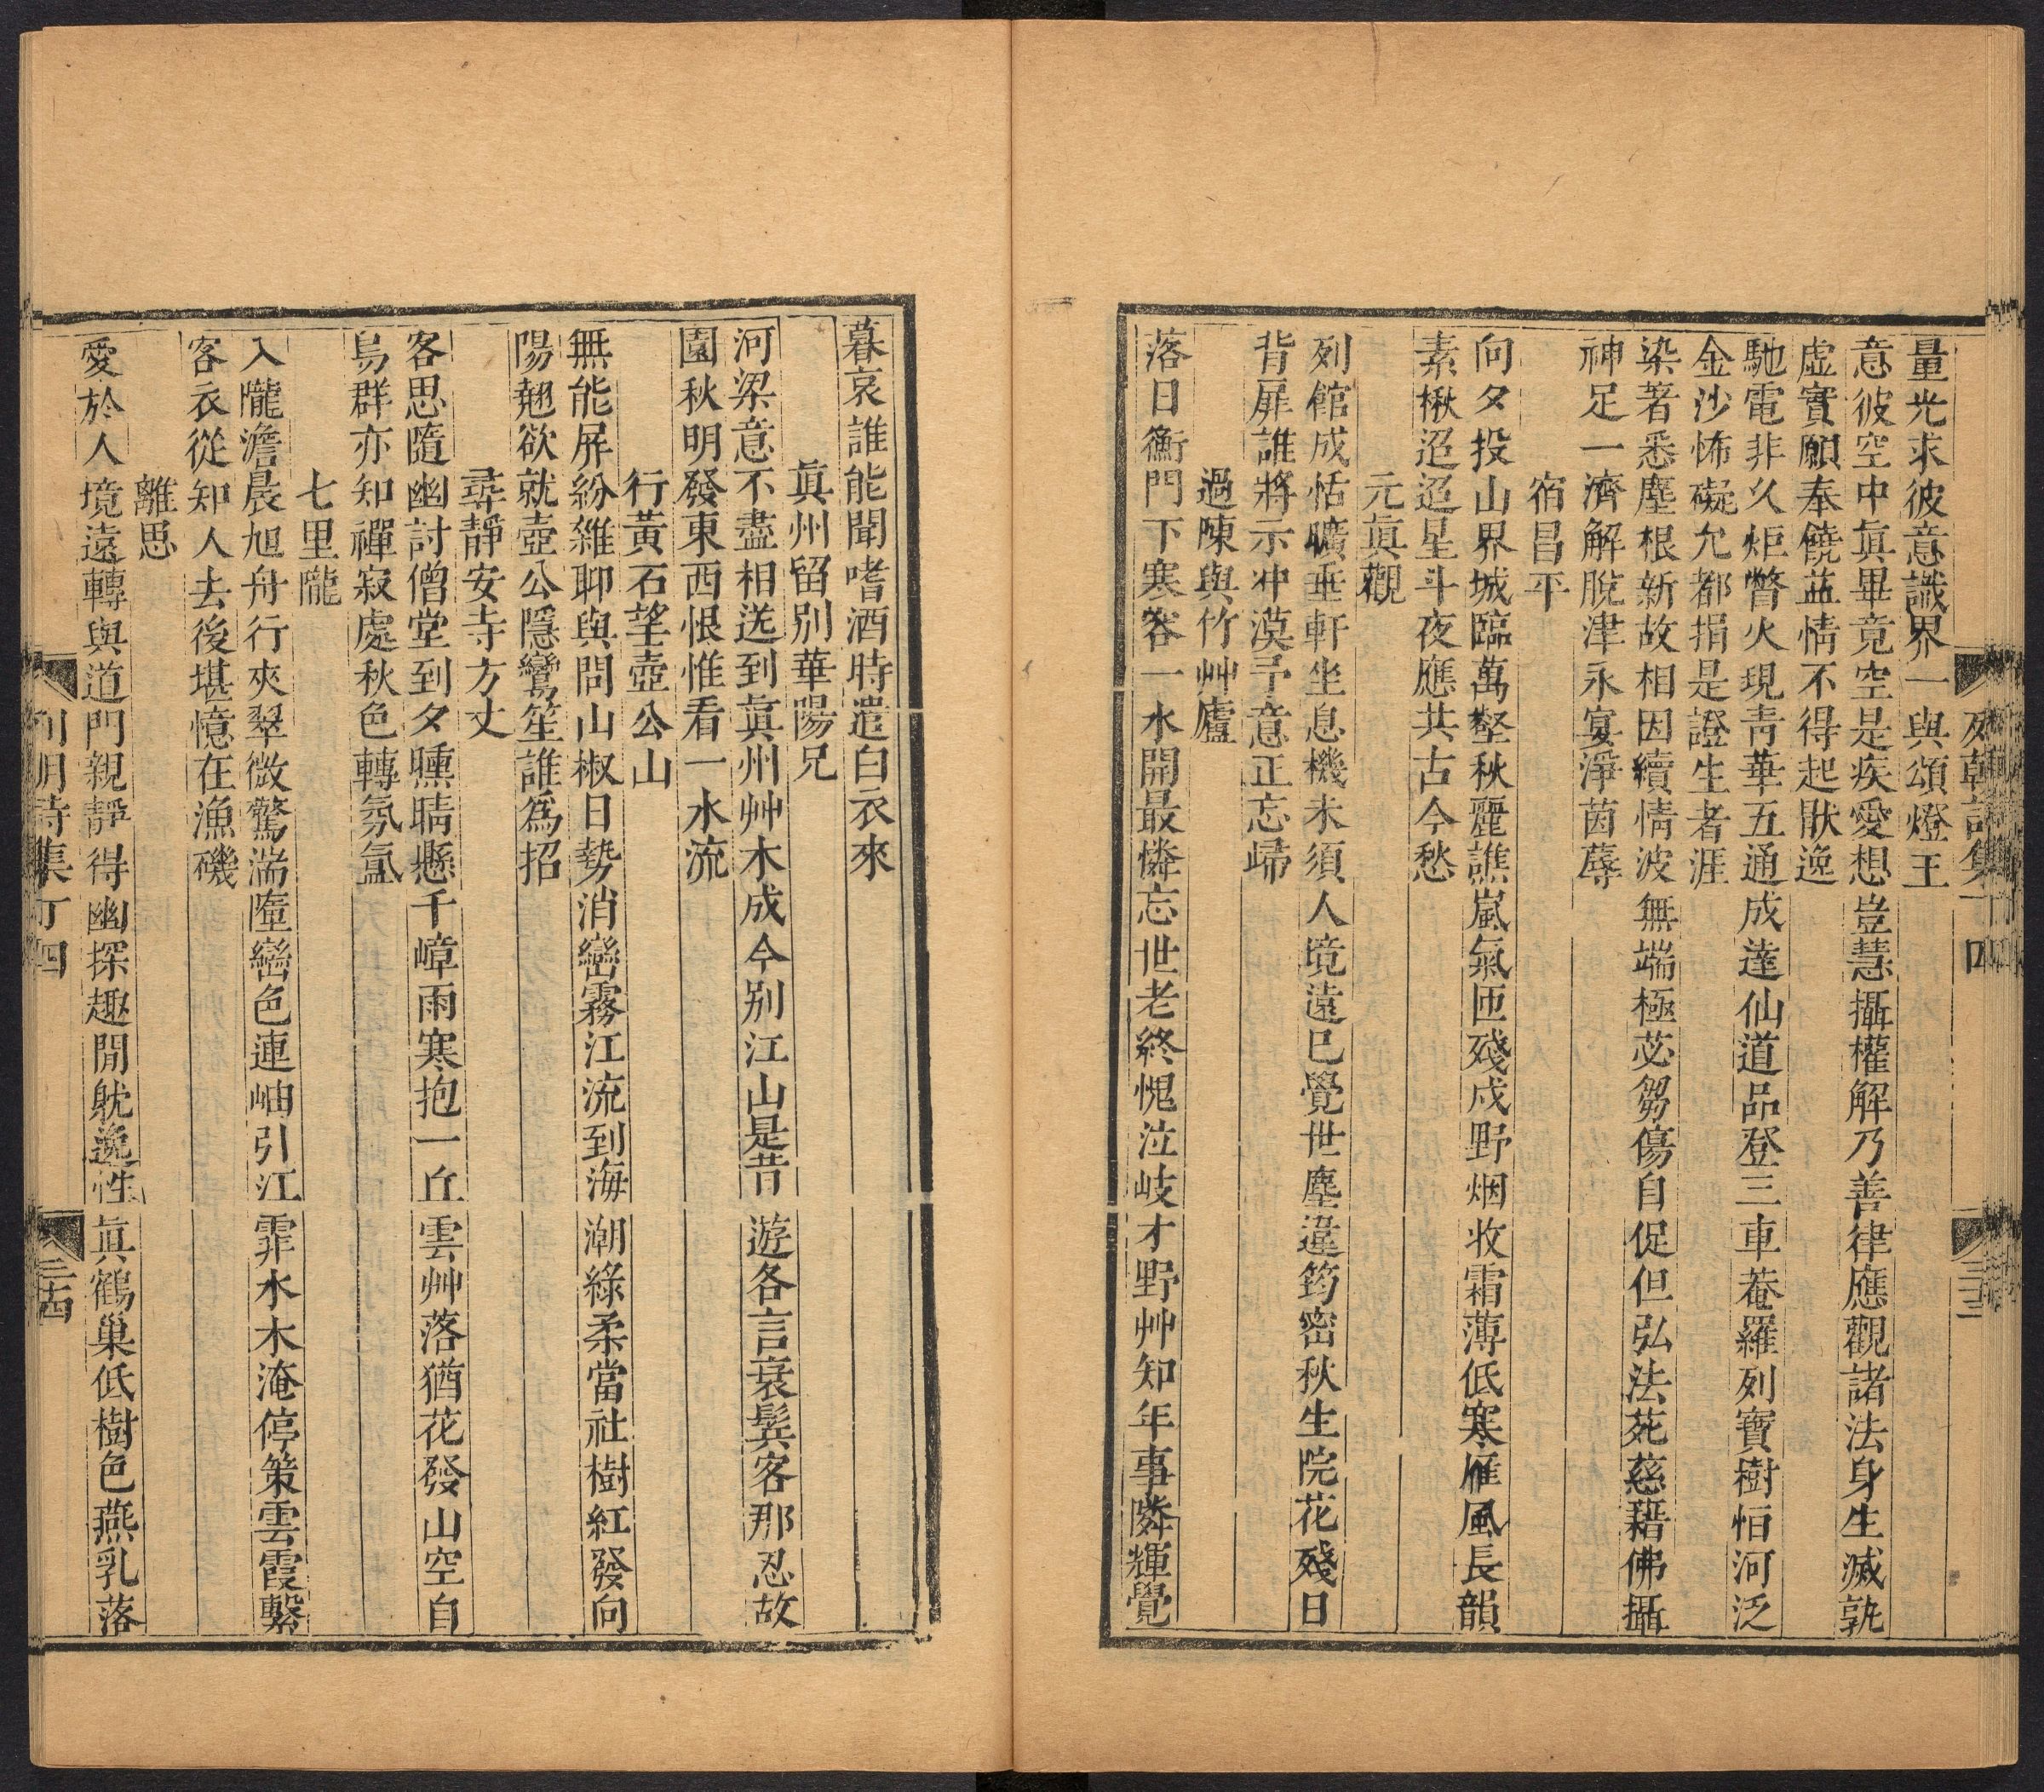 列朝詩集丁四
三三
量光求彼意識界一與頌燈王
意彼空中眞畢竟空是疾愛想豈慧攝權解乃善律應觀諸法身生滅孰
虛實願奉饒益情不得起猒逸
馳電非久炬瞥火現靑華五通成達仙道品登三車菴羅列寶樹怕河泛
金沙怖礙允都捐是證生者涯
染著悉塵根新故相因續情波無端極苾芻傷自促但弘法苑慈藉佛攝
神足一濟解脫津永宴淨茵蓐
宿昌平
向夕投山界城臨萬壑秋麗譙嵐氣匝殘戍野烟收霜薄低寒雁風長韻
素楸迢迢星斗夜應共古今愁
元眞觀
列館成恬曠垂軒坐息機未須人境遠已覺世塵違筠密秋生院花殘日
背扉誰將示冲漠予意正忘歸
過陳與竹艸廬
落日衡門下寒客一水開最憐忘世老終愧泣岐才野艸知年事隣輝覺
暮哀誰能聞嗜酒時遣白衣來
眞州留別華陽兄
河梁意不盡相送到眞州艸木成今別江山是昔遊各言衰鬂客那忍故
園秋明發東西恨惟看一水流
行黃石望壺公山
無能屏紛雜聊與問山椒日勢消巒霧江流到海潮綠柔當社樹紅發向
陽翹欲就壺公隱鸞笙誰爲招
尋靜安寺方丈
客思隨幽討僧堂到夕曛晴懸千嶂雨寒抱一丘雲艸落猶花發山空自
鳥群亦知禪寂處秋色轉氛氳
七里隴
入隴澹晨旭舟行夾翠微驚湍墮巒色連岫引江霏水木淹停策雲霞繫
客衣從知人去後堪憶在漁磯
離思
愛於人境遠轉與道門親靜得幽探趣閒躭逸性眞鶴巢低樹色燕乳落
列朝詩集丁四
三四